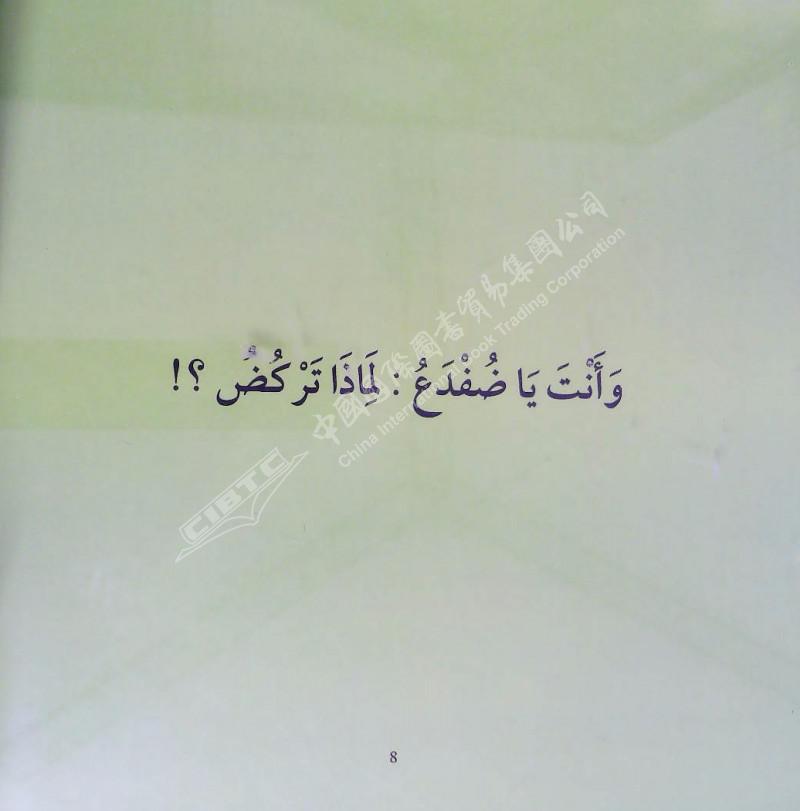 中國國際圖書貿易集團公司
China International Book Trading Corporation
وَأَنْتَ يَا ضُفْدَعُ : لِمَاذَا تَرْكُضُ ؟!
CIBTC
8